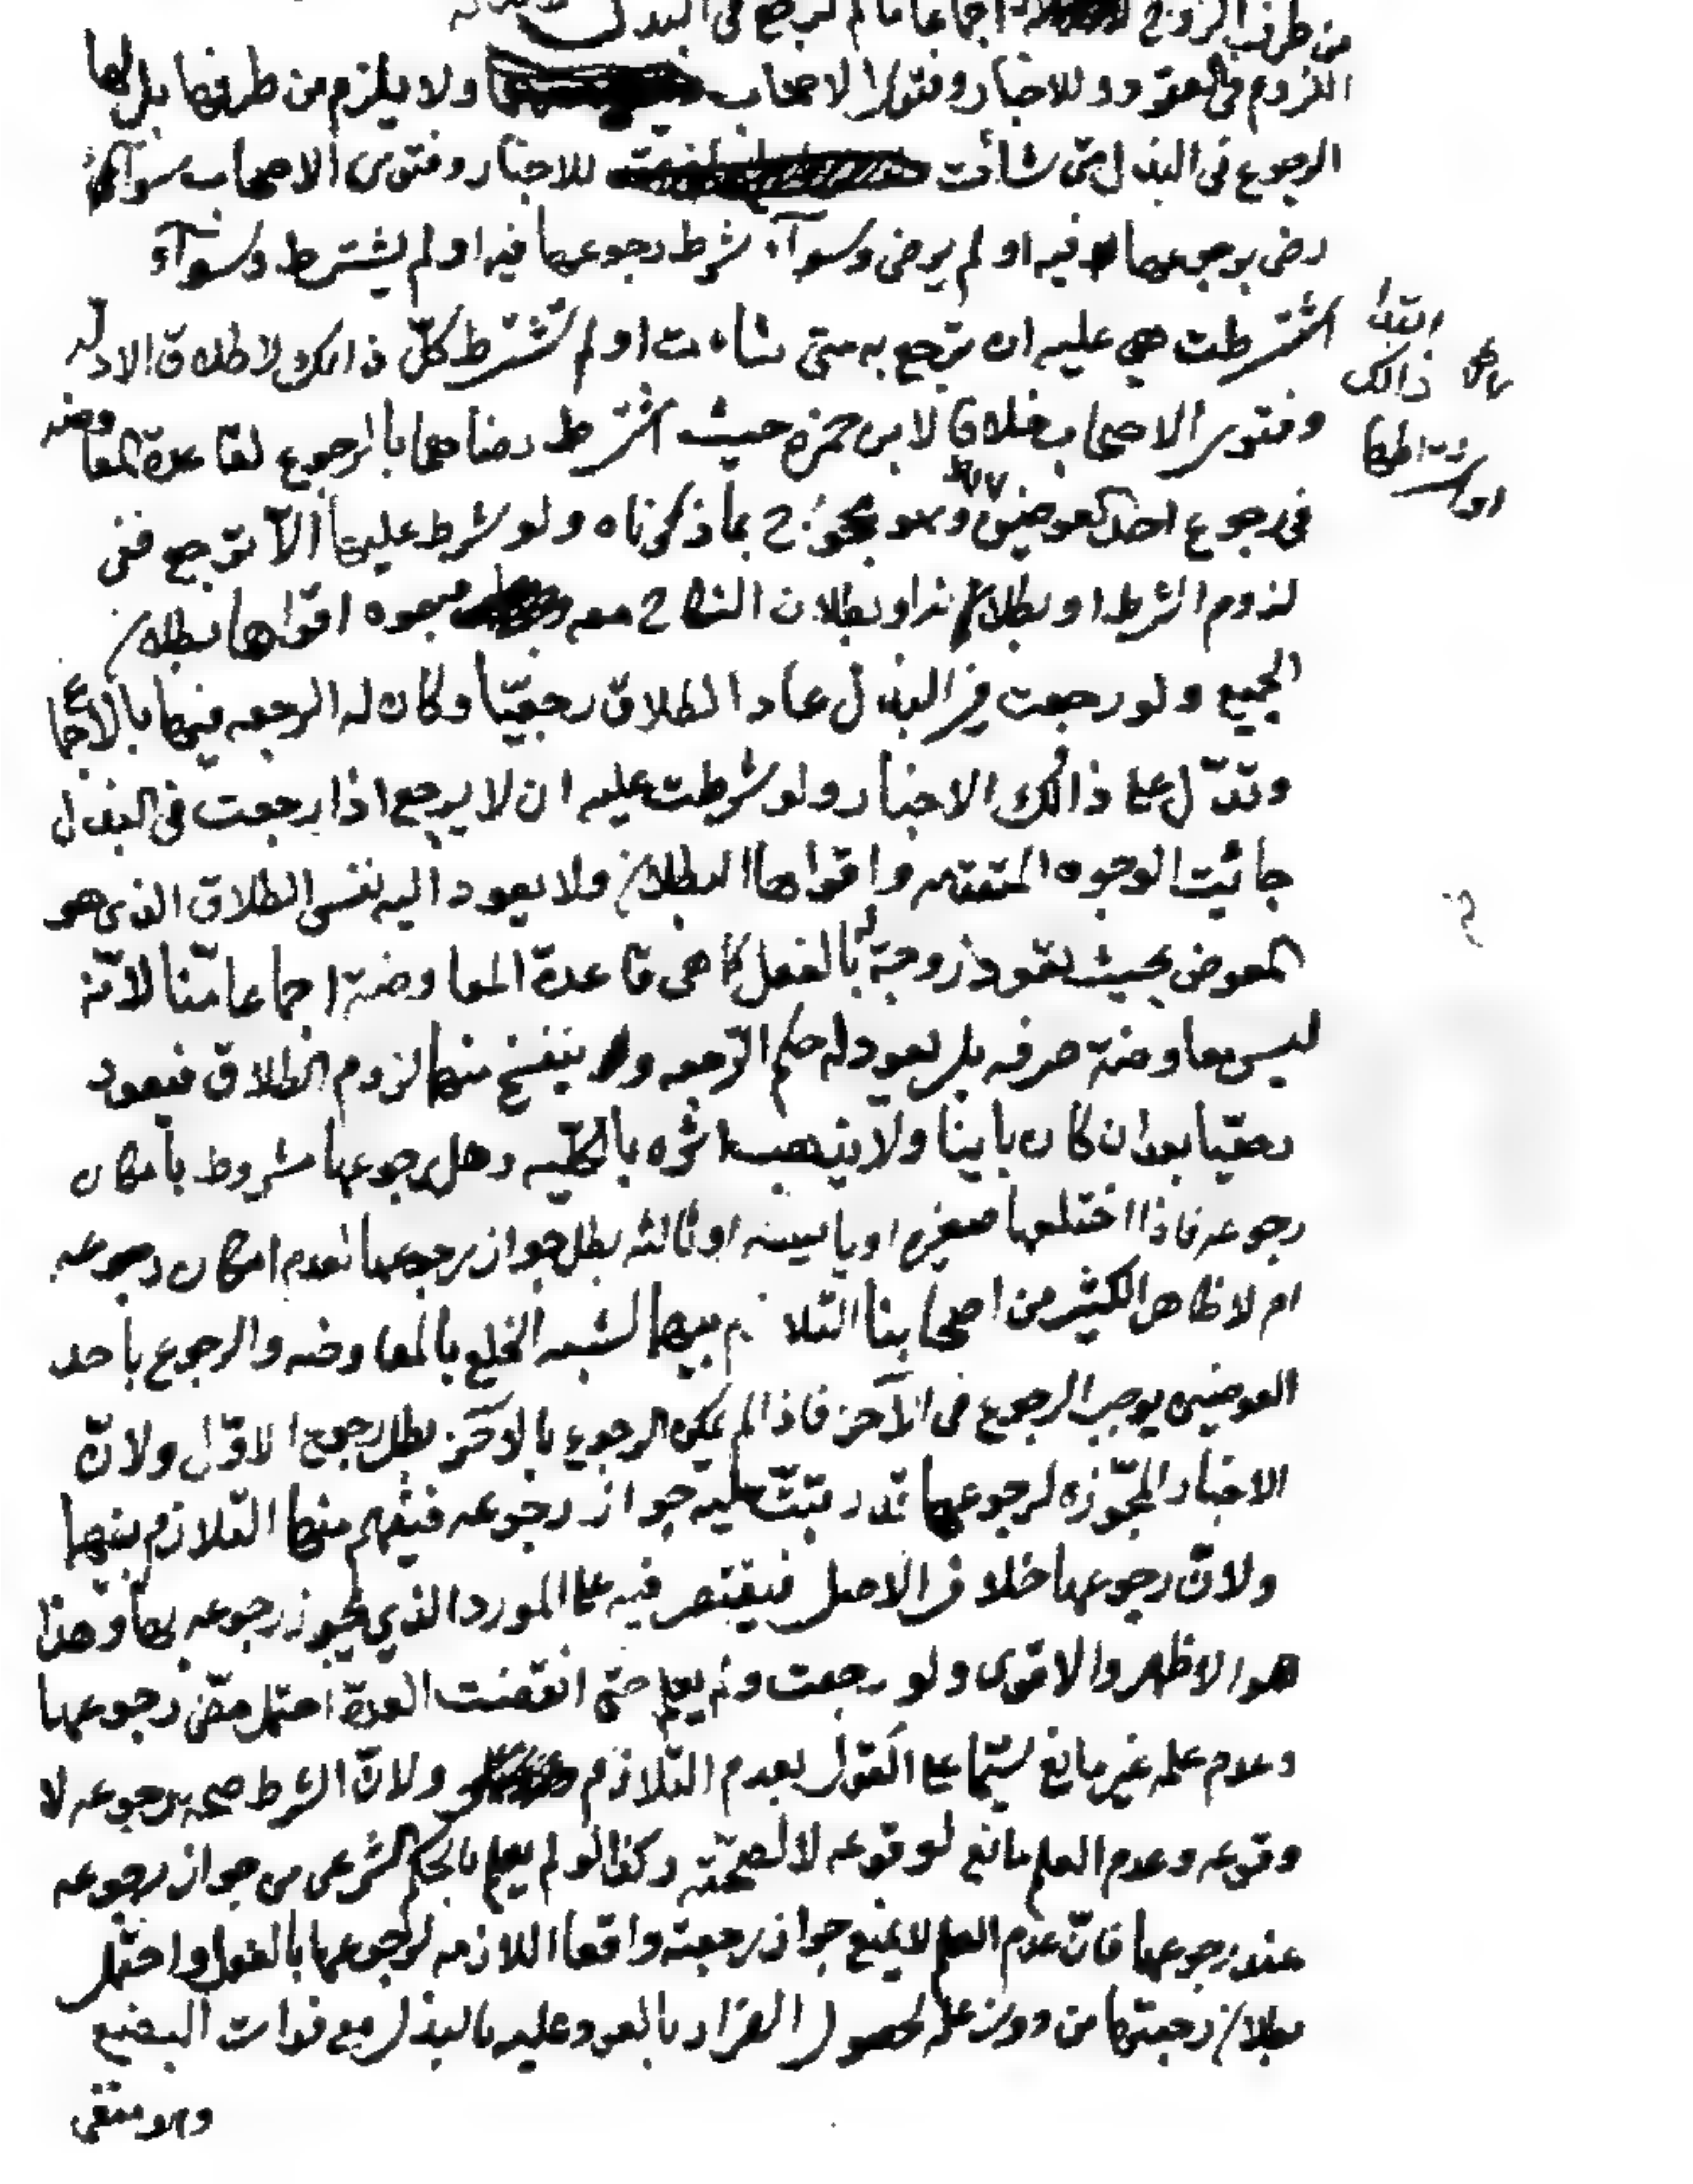 من طرف الزوج اجماعا ما لم ترجع في البذل
اللزوم في العقود وللاخبار وفتوى الاصحاب ولا يلزم من طرفها بل لها
الرجوع في البذل متى شاءت للاخبار وفتوى الاصحاب سواء
رضي برجوعها فيه او لم يرض وسوآء شرط رجوعها فيه او لم يشترط وسوآء
اشترطت هي عليه ان ترجع به متى شاءت او لم تشترط كلّ ذالك لاطلاق الادلة
ابتداء
ذالك
وفتوى الاصحاب خلافا لابن حمزه حيث اشترط رضاهما بالرجوع لقاعدة المعاوضه
في رجوع احد العوضين وهو محجوج بما ذكرناه ولو شرط عليها الّا ترجع ففي
لزوم الشرط او بطلانه او بطلان النكاح معه وجوه اقواها بطلان
الجميع ولو رجعت في البذل عاد الطلاق رجعيّا وكان له الرجعه فيها بالاجماع
وتدّل على ذالك الاخبار ولو شرطت عليه ان لا يرجع اذا رجعت في البذل
جائت الوجوه المتقدمه واقواها البطلان ولا يعود اليه نفس الطلاق الذي هو
المعوض بحيث تعود زوجة له بالفعل كما هي قاعدة المعاوضة اجماعا منّا لانّه
ليس معاوضة صرفه بل يعود له حكم الرّجعه ولا ينفسخ منها لزوم الطلاق فيعود
رجعيّا بعد ان كان باينا ولا يذهب اثره بالكليّه وهل رجوعها مشروط بامكان
رجوعه فاذا اختلعها صغيره او يايسه او ثالثه بطل جواز رجوعها لعدم امكان رجوعه
ام لا ظاهر الكثير من اصحابنا التلازم بينهما لشبه الخلع بالمعاوضه والرجوع باحد
العوضين يوجب الرجوع في الآخر فاذا لم يمكن الرجوع بالآخر بطل رجوع الاوّل ولانّ
الاخبار المجوّزه لرجوعها قد رتبت عليه جواز رجوعه فيفهم منها التّلازم بينهما
ولانّ رجوعها خلاف الاصل فيقتصر فيه على المورد الذي يجوز رجوعه بها وهذا
هو الاظهر والاقوى ولو رجعت ولم يعلم حتى انقضت العدّة احتمل مضي رجوعها
وعدم علمه غير مانع سيّما على القول بعدم التّلازم ولانّ الشرط صحه رجوعه لا
وقوعه وعدم العلم مانع لوقوعه لا لصحّته وكذا لو لم يعلم بالحكم الشرعي من جواز رجوعه
عند رجوعها فانّ عدم العلم لا يمنع جواز رجعته واقعا اللازمه لرجوعها بالفعل واحتمل
بطلان رجعتها من دون علمه لحصول الضرار بالعود عليه بالبذل مع فوات البضع
وهو منفي